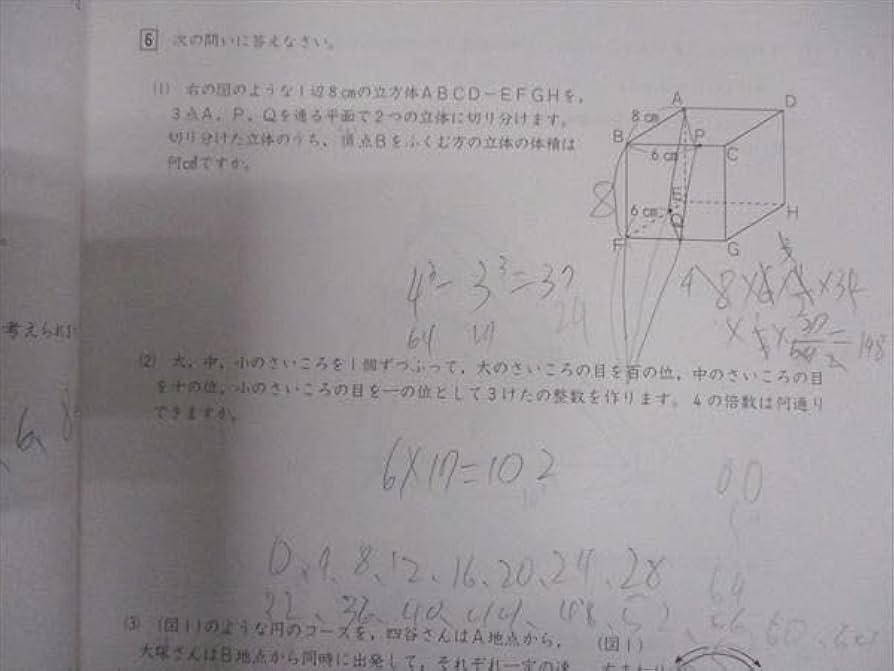 6 次の問いに答えなさい。
(1) 右の図のような1辺8cmの立方体ABCD－EFGHを,
3点A, P, Qを通る平面で2つの立体に切り分けます。
切り分けた立体のうち, 頂点Bをふくむ方の立体の体積は
何cm³ですか。
A
D
8cm
B
P
C
6cm
8
E
6cm
Q
H
F
G
4³－3³＝37
64
(2) 大, 中, 小のさいころを1個ずつふって, 大のさいころの目を百の位, 中のさいころの目
を十の位, 小のさいころの目を一の位として3けたの整数を作ります。4の倍数は何通り
できますか。
6×17＝102
00
0、4、8、12、16、20、24、28
32、36、40、44、48、52、56、60
64
考えられ
6、
(3) (図1)のような円のコースを, 四谷さんはA地点から,
大塚さんはB地点から同時に出発して, それぞれ一定の速
(図1)